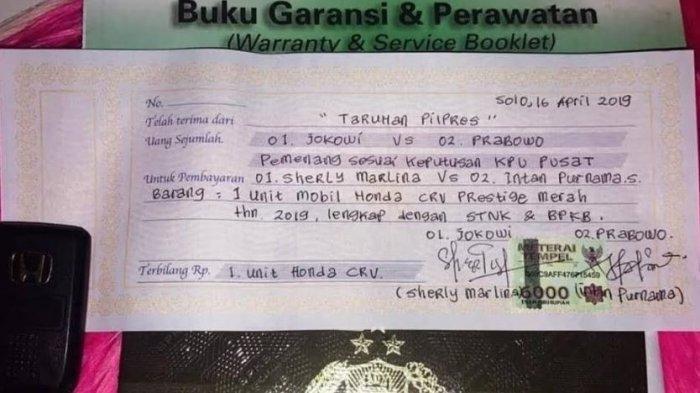 Buku Garansi & Perawatan
(Warranty & Service Booklet)
No. Solo, 16 April 2019
Telah terima dari "TARUHAN PILPRES"
Uang Sejumlah. 01. JOKOWI VS 02. PRABOWO
Pemenang sesuai Keputusan KPU PUSAT
Untuk Pembayaran 01. Sherly Marlina VS 02. Intan Purnama.S.
Barang : 1 Unit Mobil Honda CRV Prestige Merah
thn. 2019, lengkap dengan STNK & BPKB.
01. JOKOWI 02. PRABOWO.
METERAI
TEMPEL
Terbilang Rp. 1. Unit Honda CRV.
6000
(Sherly Marlina) (Intan Purnama)